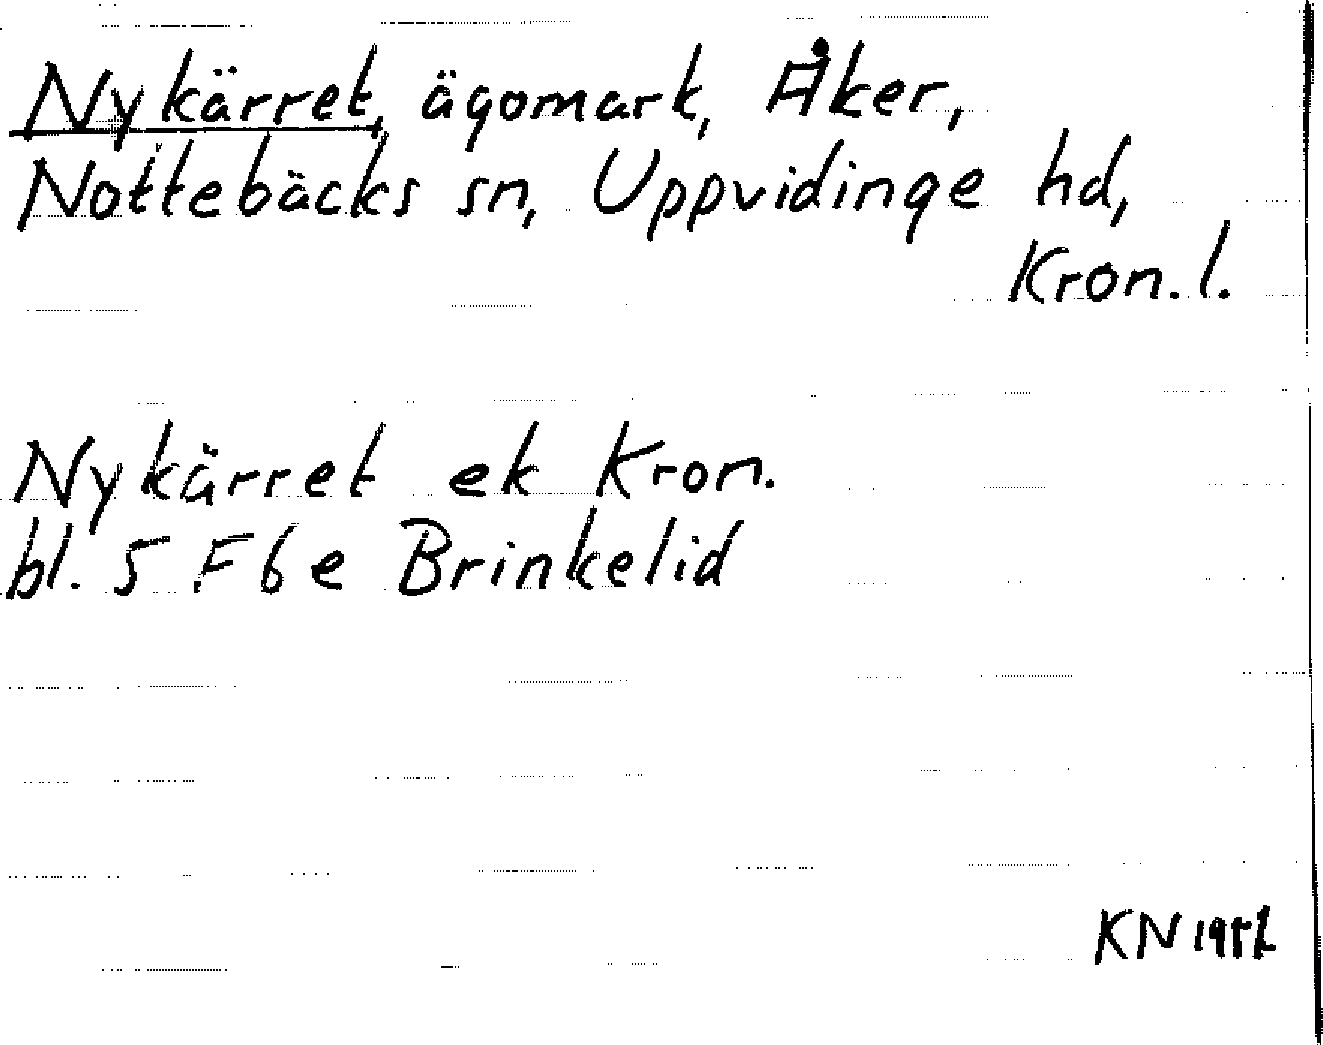 Nykärret, ägomark, Åker,
Nottebäcks sn, Uppvidinge hd,
Kron. l.
Nykärret ek Kron.
bl. 5 F 6 e Brinkelid
KN